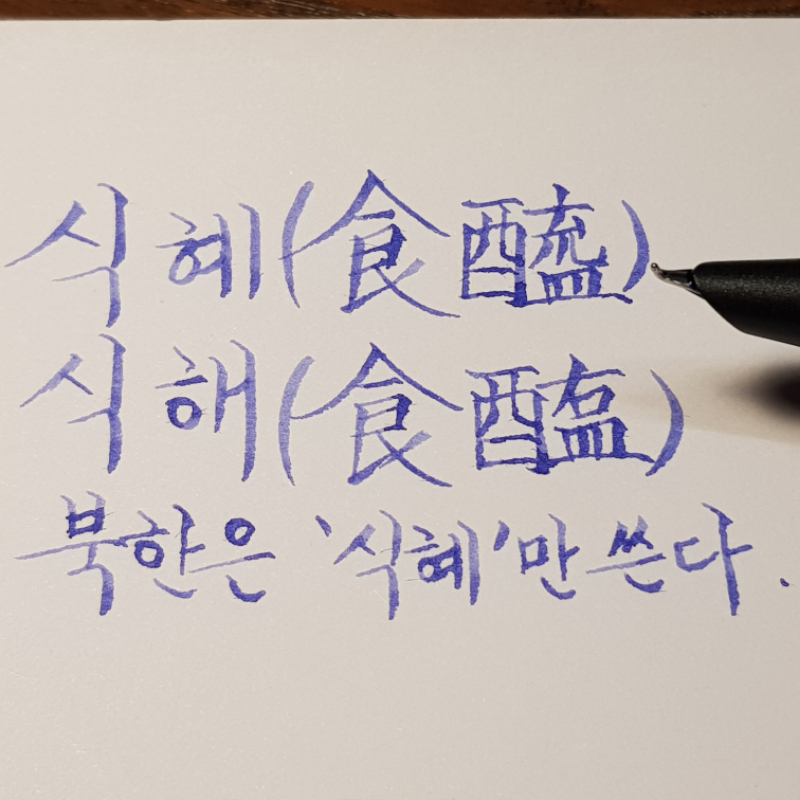 식혜(食醯)
식해(食醢)
북한은 '식혜'만 쓴다.